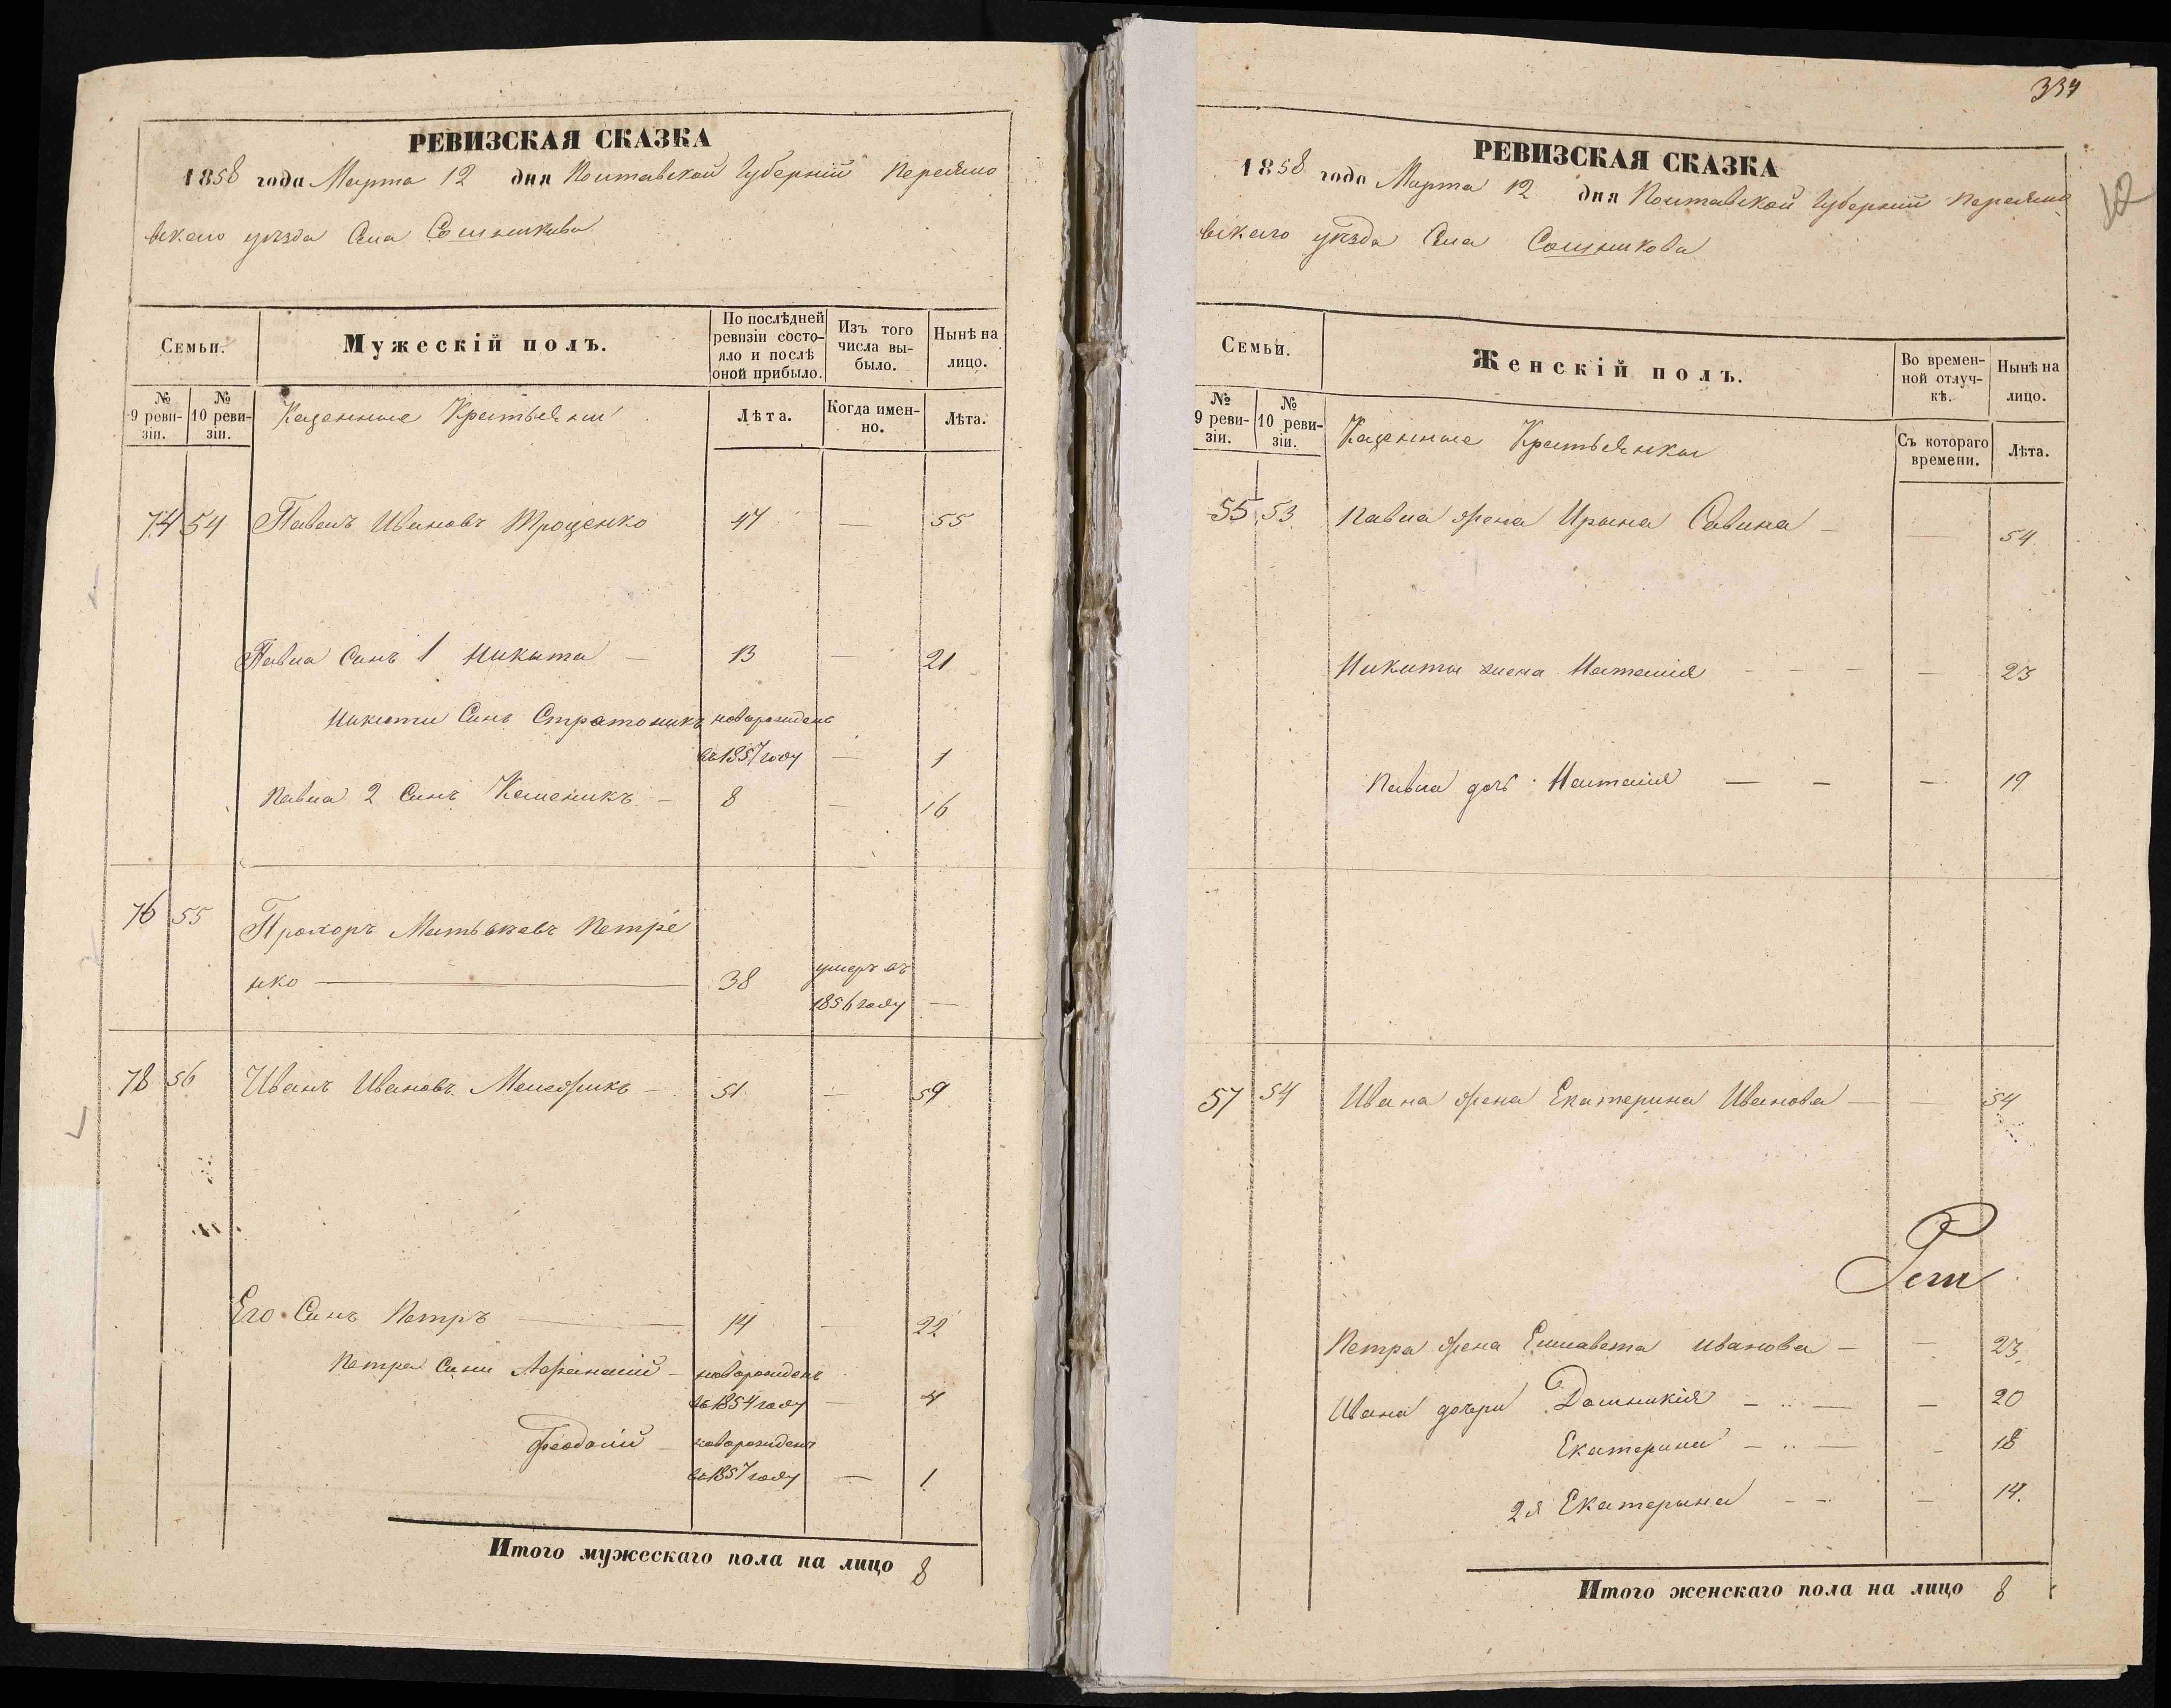 РЕВИЗСКАЯ СКАЗКА
1858 года Марта 12 дня Полтавской Губерніи Переясло
вскаго уѣзда Села Сошникова
Семьи.
Мужескій полъ.
По послѣдней ревизіи состояло и послѣ оной прибыло.
Изъ того числа выбыло.
Нынѣ на лицо.
№ 9 ревизіи.
№ 10 ревизіи.
Казенные Крестьяни
Лѣта.
Когда именно.
Лѣта.
74 54 Павелъ Ивановъ Троценко 47 — 55
Павла Синъ 1 Никита — 13 — 21
Никити Синъ Стратоникъ новорожденъ
въ 1857 году — 1
Павла 2 Синъ Келеникъ — 8 — 16
76 55 Прохоръ Матвѣевъ Петре
нко — 38 умеръ въ
1856 году —
78 56 Иванъ Ивановъ — 51 — 59
Его Синъ Петръ — 14 — 22
Петра Сини Афанасій — новорожденъ
въ 1854 году — 4
Феодосій — новорожденъ
въ 1857 году — 1
Итого мужескаго пола на лицо 8
334
12
РЕВИЗСКАЯ СКАЗКА
1858 года Марта 12 дня Полтавской Губерніи Переясло
вскаго уѣзда Села Сошникова
Семьи.
Женскій полъ.
Во временной отлучкѣ.
Нынѣ на лицо.
№ 9 ревизіи.
№ 10 ревизіи.
Казенные Крестьянки
Съ котораго времени.
Лѣта.
55 53 Павла жена Ирина Савина — — 54
Никиты жена Наталія — — — — 23
Павла дочь Наталія — — — 19
57 54 Ивана жена Екатерина Иванова — — 54
Петра жена Елисавета Иванова — — 23
Ивана дочери Домникія — — — 20
Екатерина — — — 18
2я Екатерина — — — 14.
Итого женскаго пола на лицо 8